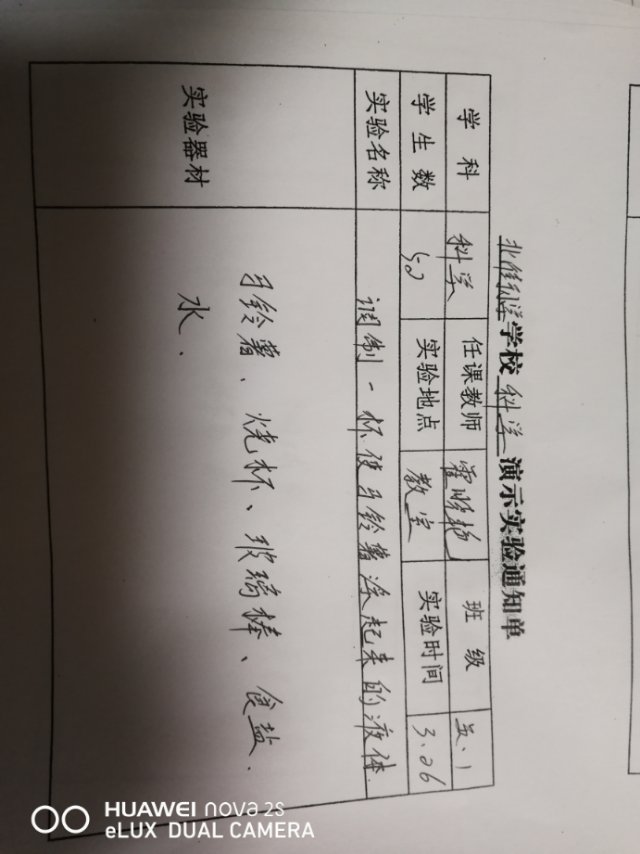 学校 科学 演示实验通知单
学 科 科学 任课教师 霍晓艳 班 级 五、1
学 生 数 50 实验地点 教室 实验时间 3.26
实验名称 调制一杯使马铃薯浮起来的液体
实验器材 马铃薯、烧杯、玻璃棒、食盐、
水、
HUAWEI nova 2s
eLUX DUAL CAMERA